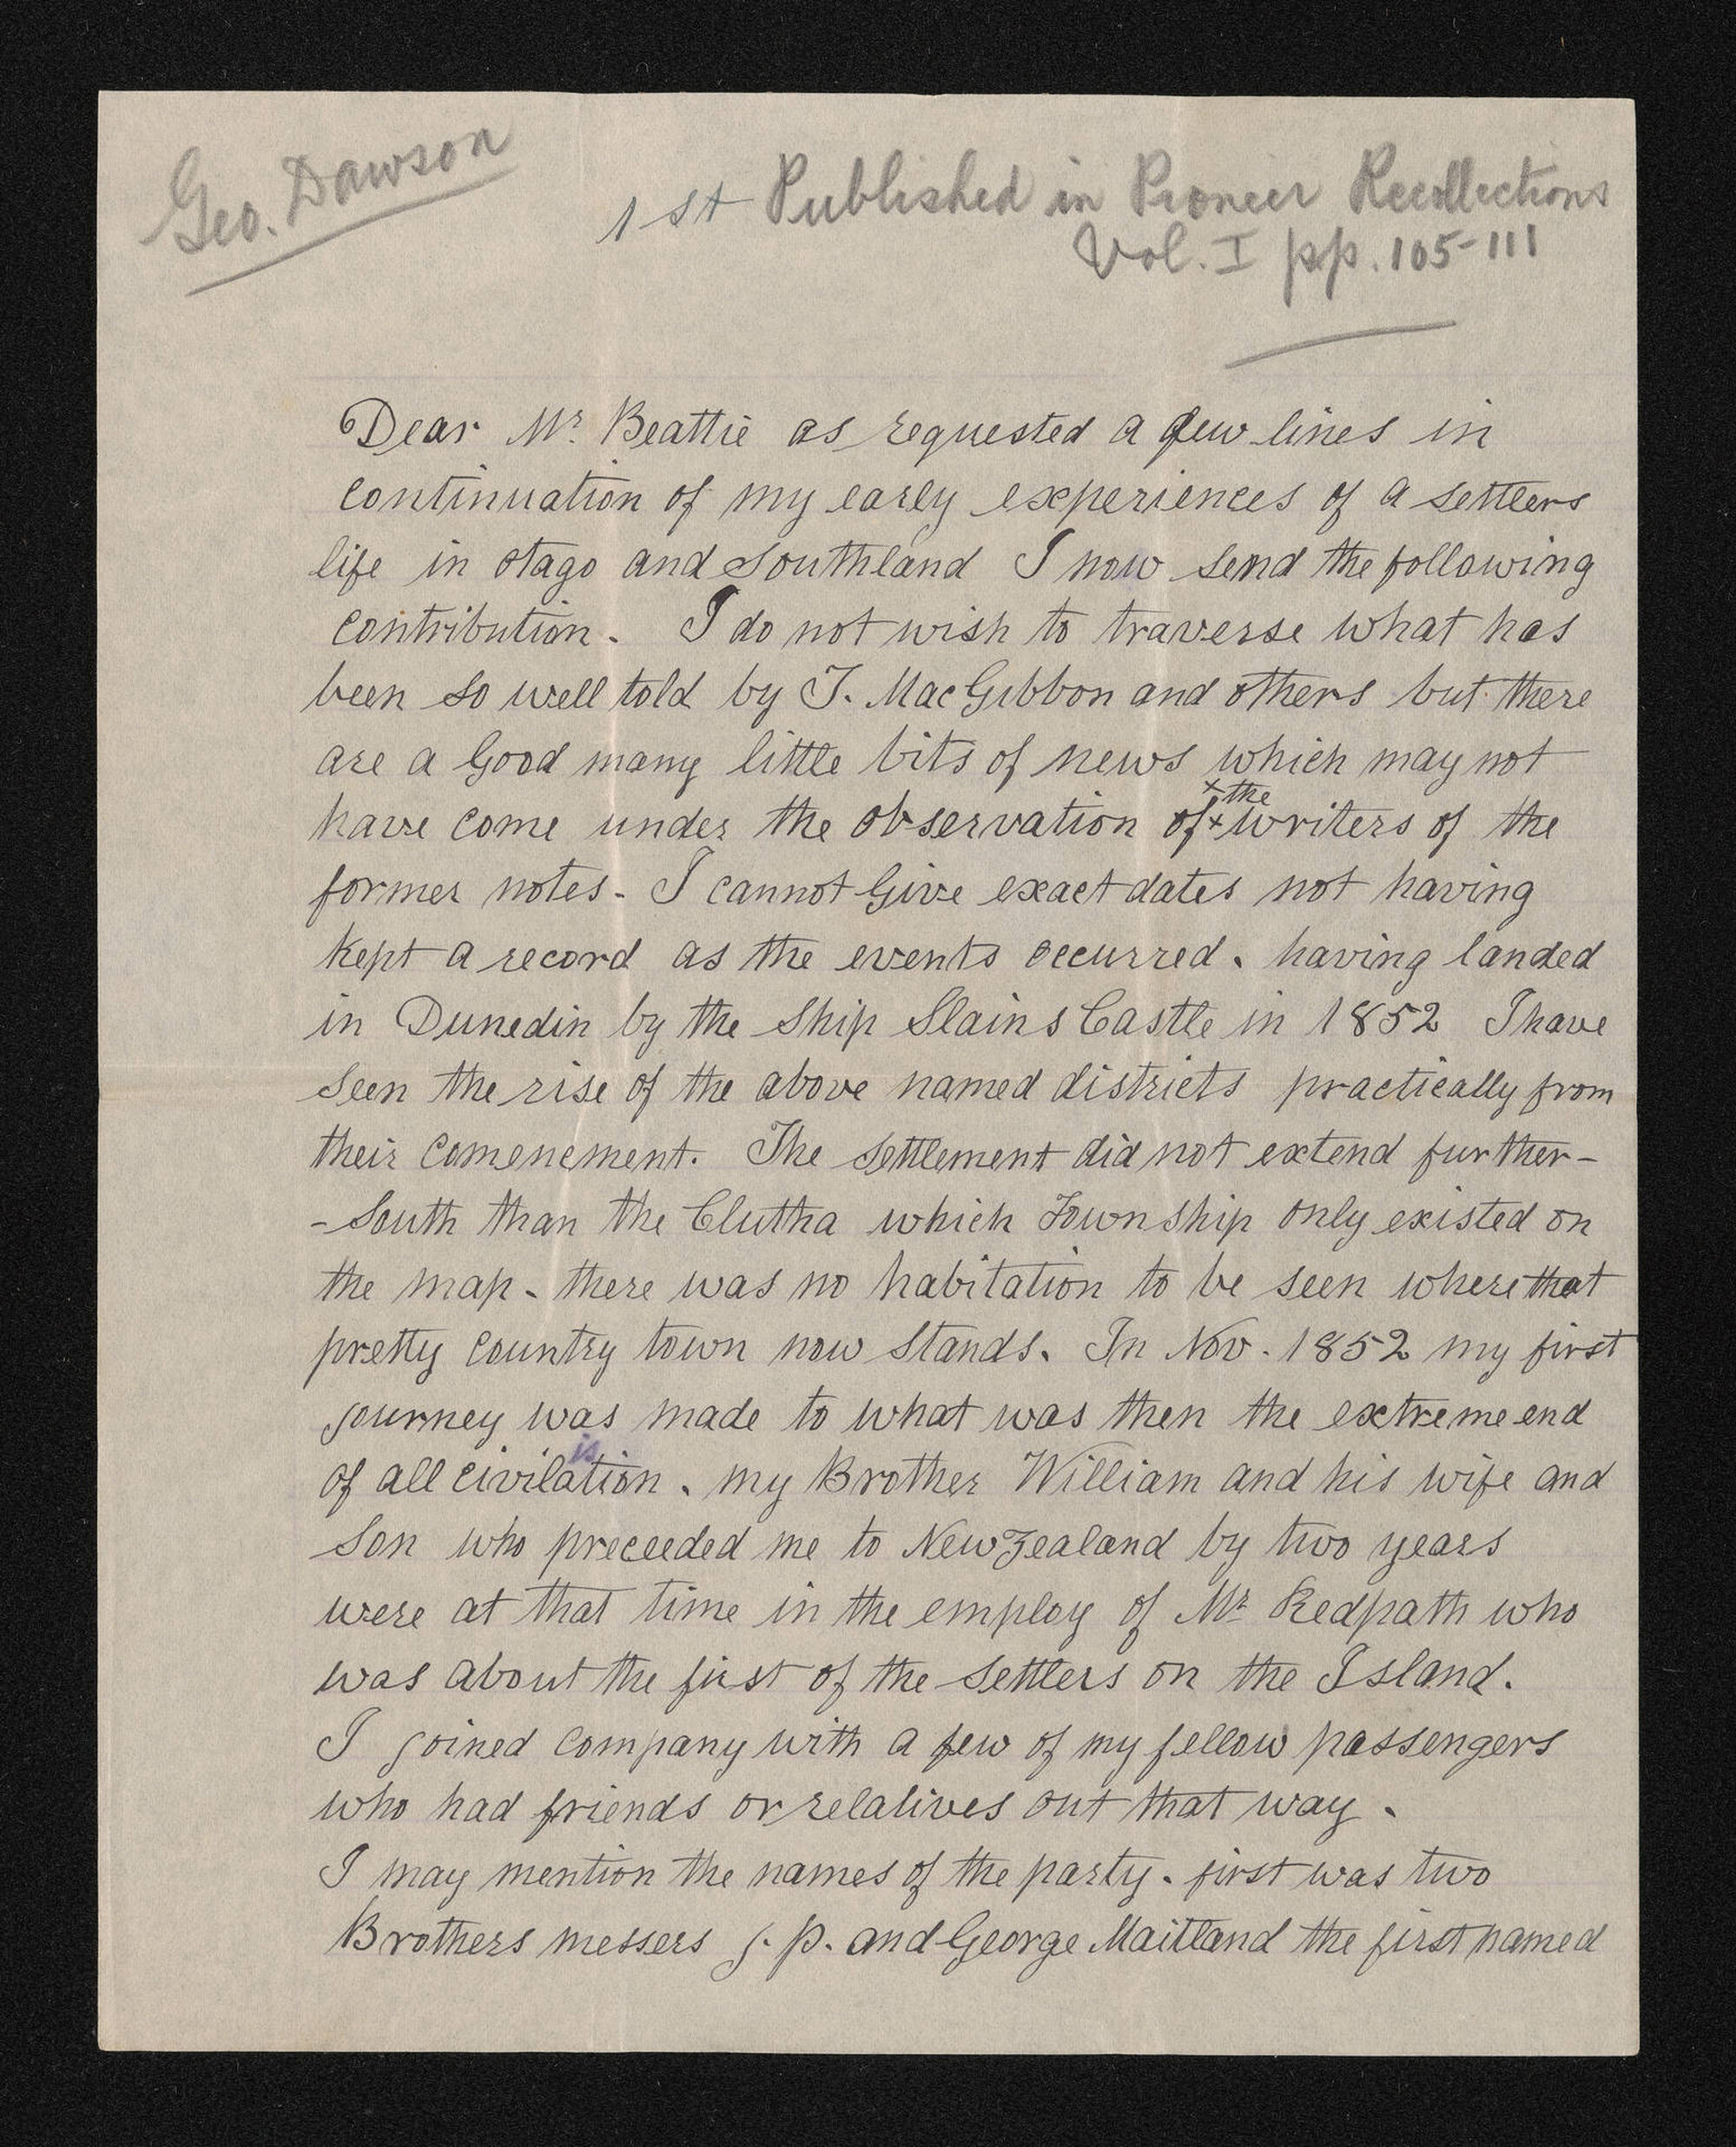 Geo. Dawson
1st Published in Pioneer Recollections
Vol. I pp. 105-111
Dear Mr. Beattie as requested a few lines in
continuation of my early experiences of a settlers
life in otago and Southland I now send the following
contribution. I do not wish to traverse what has
been so well told by T. MacGibbon and others but there
are a Good many little bits of news which may not
x the
have come under the observation of x writers of the
former notes - I cannot Give exact dates not having
kept a record as the events occurred. having landed
in Dunedin by the Ship Slains Castle in 1852 I have
seen the rise of the above named districts practically from
their comencment. The settlement did not extend further-
- South than the Clutha which Township only existed on
the map - there was no habitation to be seen where that
pretty country town now stands. In Nov. 1852 my first
journey was made to what was then the extreme end
is
of all civilation. my Brother William and his wife and
Son who preceeded me to New Zealand by two years
were at that time in the employ of Mr Redpath who
was about the first of the settlers on the Island.
I joined company with a few of my fellow passengers
who had friends or relatives out that way.
I may mention the names of the party. first was two
Brothers messers J. P. and George Maitland the first named